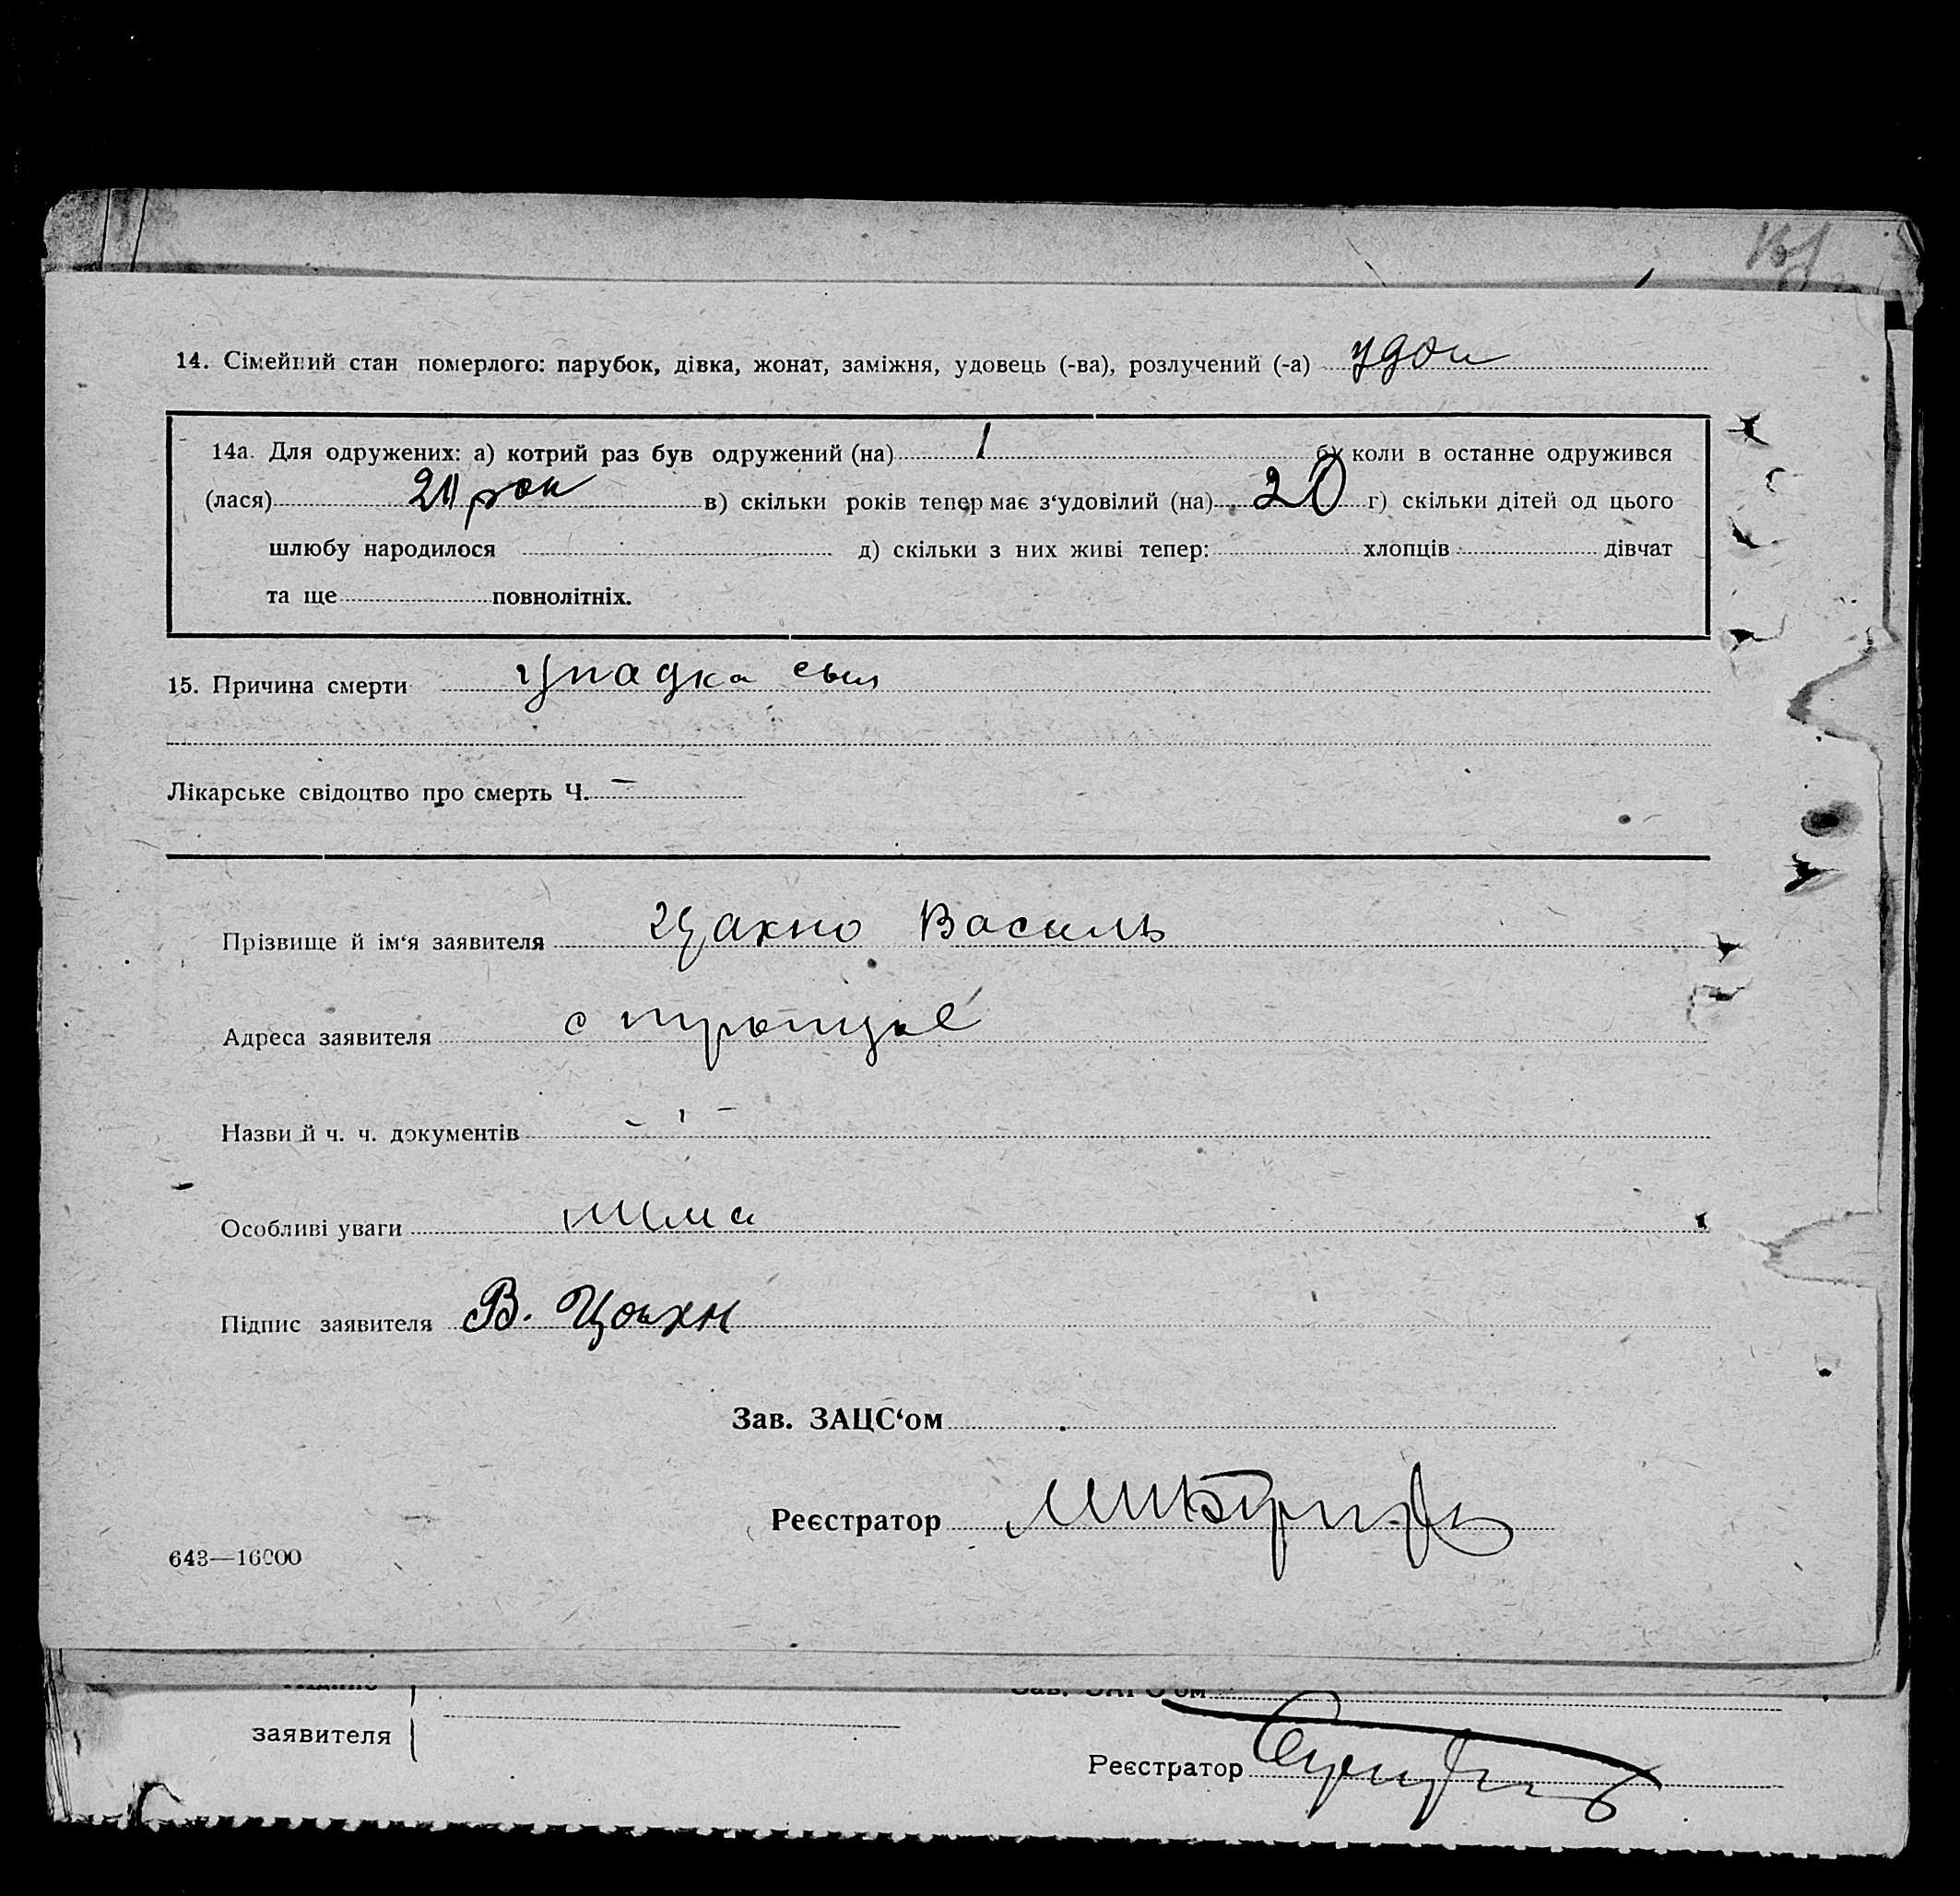 14. Сімейний стан померлого: парубок, дівка, жонат, заміжня, удовець (-ва), розлучений (-а) удов
14а. Для одружених: а) котрий раз був одружений (на) 1 б) коли в останнє одружився
(лася) 20 рок в) скільки років тепер має з‘удовілий (на) 20 г) скільки дітей од цього
шлюбу народилося д) скільки з них живі тепер: хлопців дівчат
та ще повнолітніх.
15. Причина смерти упадка сыл
Лікарське свідоцтво про смерть Ч. –
Прізвище й ім‘я заявителя Цахно Василь
Адреса заявителя с
Назви й ч. ч. документів
Особливі уваги нима
Підпис заявителя В. Цахн
Зав. ЗАЦС‘ом
Реєстратор
643—16000
Зав. ЗАГС‘ом
заявителя
Реєстратор